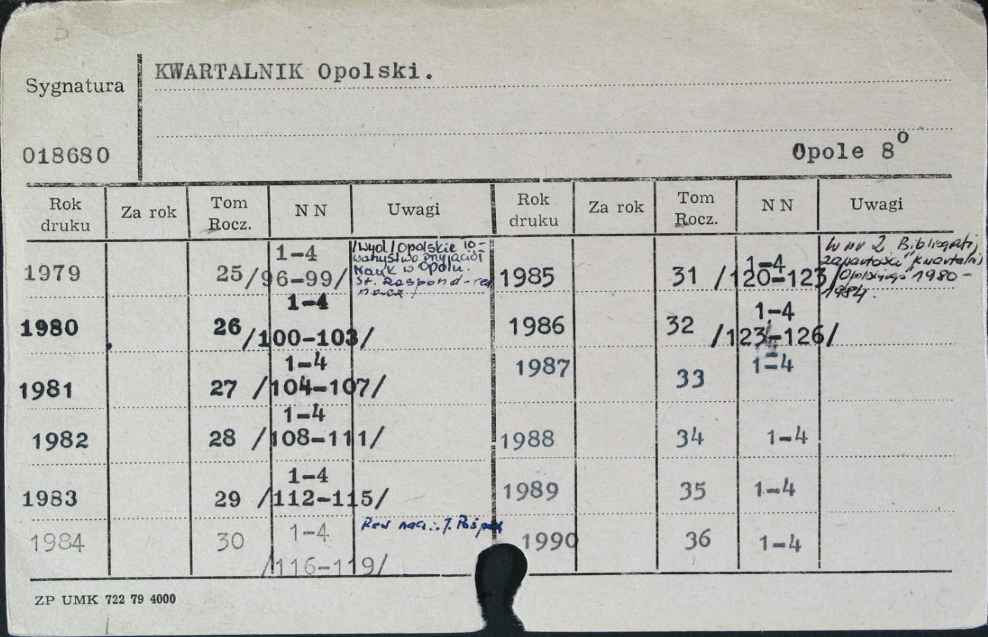 KWARTALNIK Opolski.
Sygnatura
018680
Opole 8°
Rok druku Za rok Tom Rocz. NN Uwagi Rok druku Za rok Tom Rocz. NN Uwagi
1979 25 1-4 /96-99/ /Wyd/ Opolskie To-
warzystwo Przyjaciół
Nauk w Opolu.
1985 31 1-4 /120-123/ W nr 2 Bibliografia
zawartości "Kwartalnika
Opolskiego" 1980-
1984.
1980 26 1-4 /100-103/
1986 32 1-4 /123-126/
1981 27 1-4 /104-107/
1987 33 1-4
1982 28 1-4 /108-111/
1988 34 1-4
1983 29 1-4 /112-115/
1989 35 1-4
1984 30 1-4 /116-119/ Red. nacz.: J. Pośpiech
1990 36 1-4
ZP UMK 722 79 4000